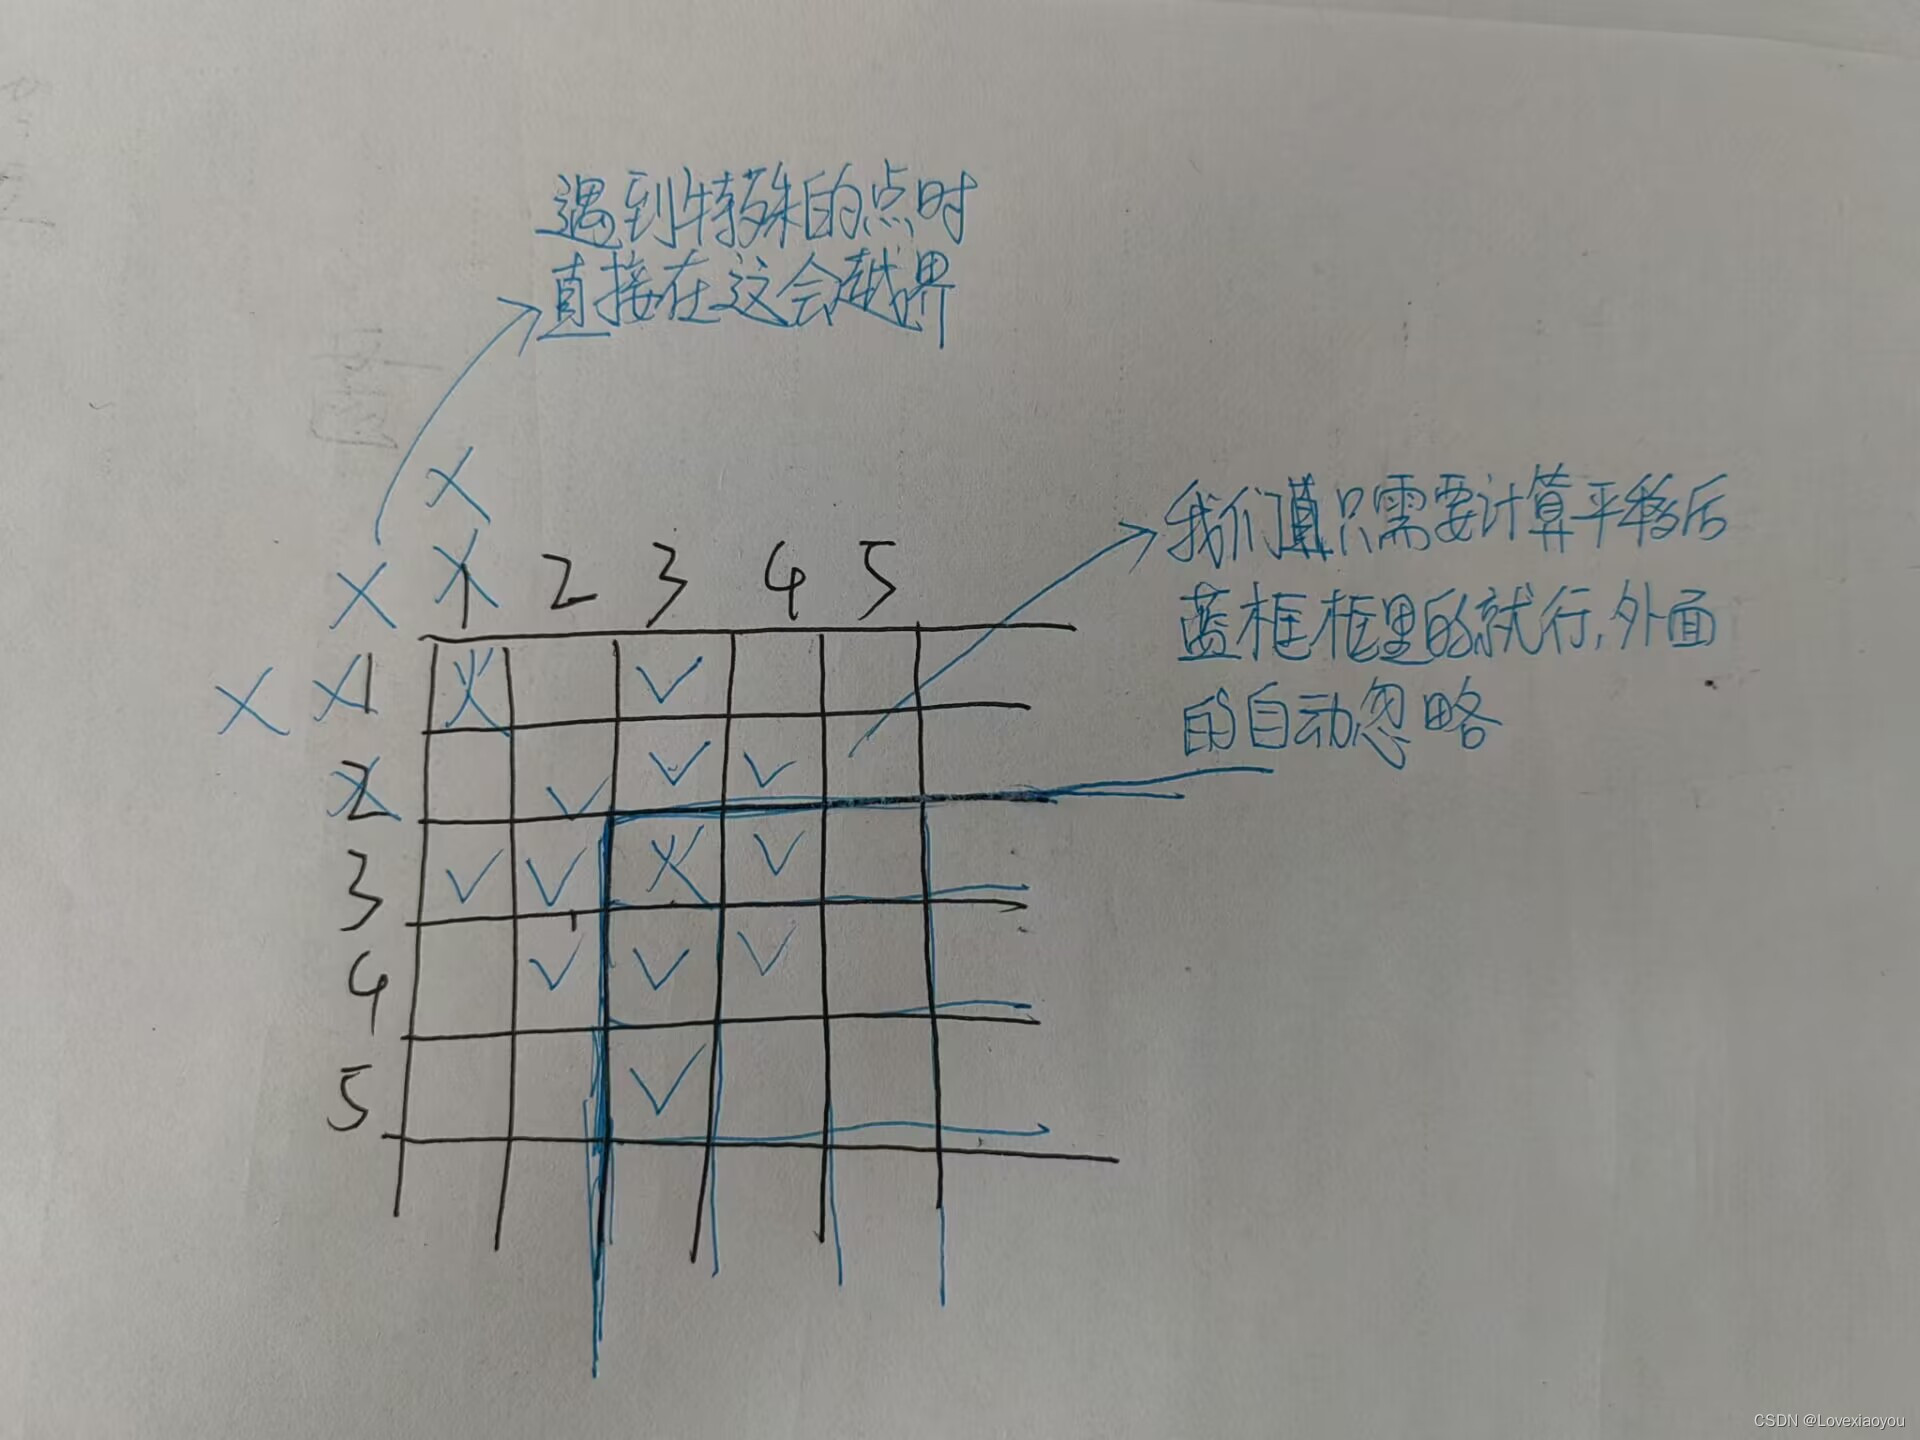 遇到特殊的点时
直接在这会越界
我们只需要计算平移后
蓝框框里的就行,外面
的自动忽略
1 2 3 4 5
1 火
2
3 火
4
5
CSDN @Lovexiaoyou